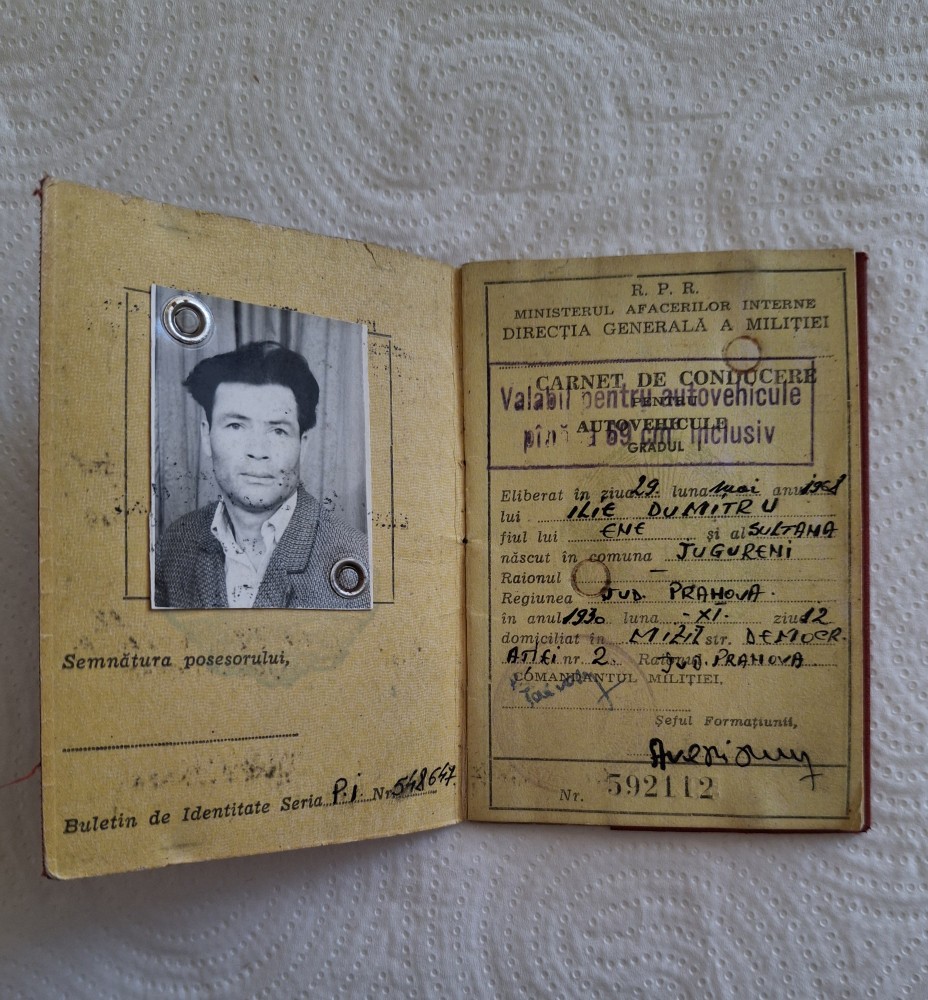 Semnătura posesorului,
Buletin de Identitate Seria P.i Nr. 548647
R. P. R.
MINISTERUL AFACERILOR INTERNE
DIRECȚIA GENERALĂ A MILIȚIEI
CARNET DE CONDUCERE
PENTRU
AUTOVEHICULE
GRADUL
Valabil pentru autovehicule
pînă a 69 cm. inclusiv
Eliberat în ziua 29. luna mai anul 1968
lui ILIE DUMITRU
fiul lui ENE și al SULTANA
născut în comuna JUGURENI
Raionul —
Regiunea JUD. PRAHOVA.
în anul 1930 luna -XI- ziua 12
domiciliat în MIZIL str. DEMOCR-
ATIEI nr. 2. Raionul JUD. PRAHOVA
COMANDANTUL MILIȚIEI,
Șeful Formațiunii,
Nr. 592112